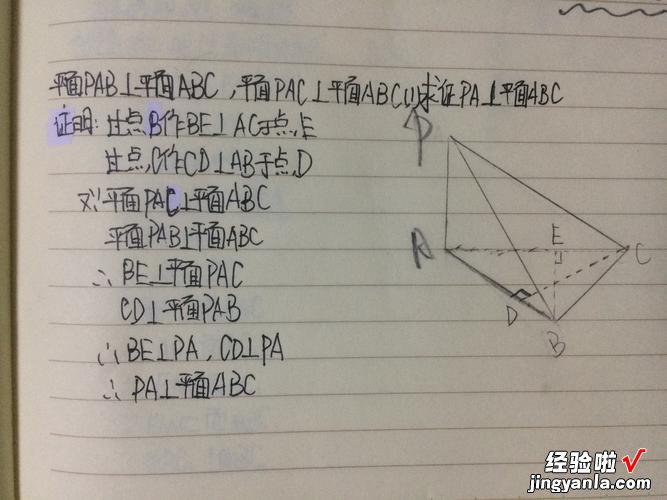 平面PAB⊥平面ABC,平面PAC⊥平面ABC(1)求证PA⊥平面ABC
证明:过点B作BE⊥AC于点E
过点C作CD⊥AB于点D
又∵平面PAC⊥平面ABC
平面PAB⊥平面ABC
∴BE⊥平面PAC
CD⊥平面PAB
∴BE⊥PA,CD⊥PA
∴PA⊥平面ABC
P
A
E
C
D
B
经验啦√
jingyanla.com